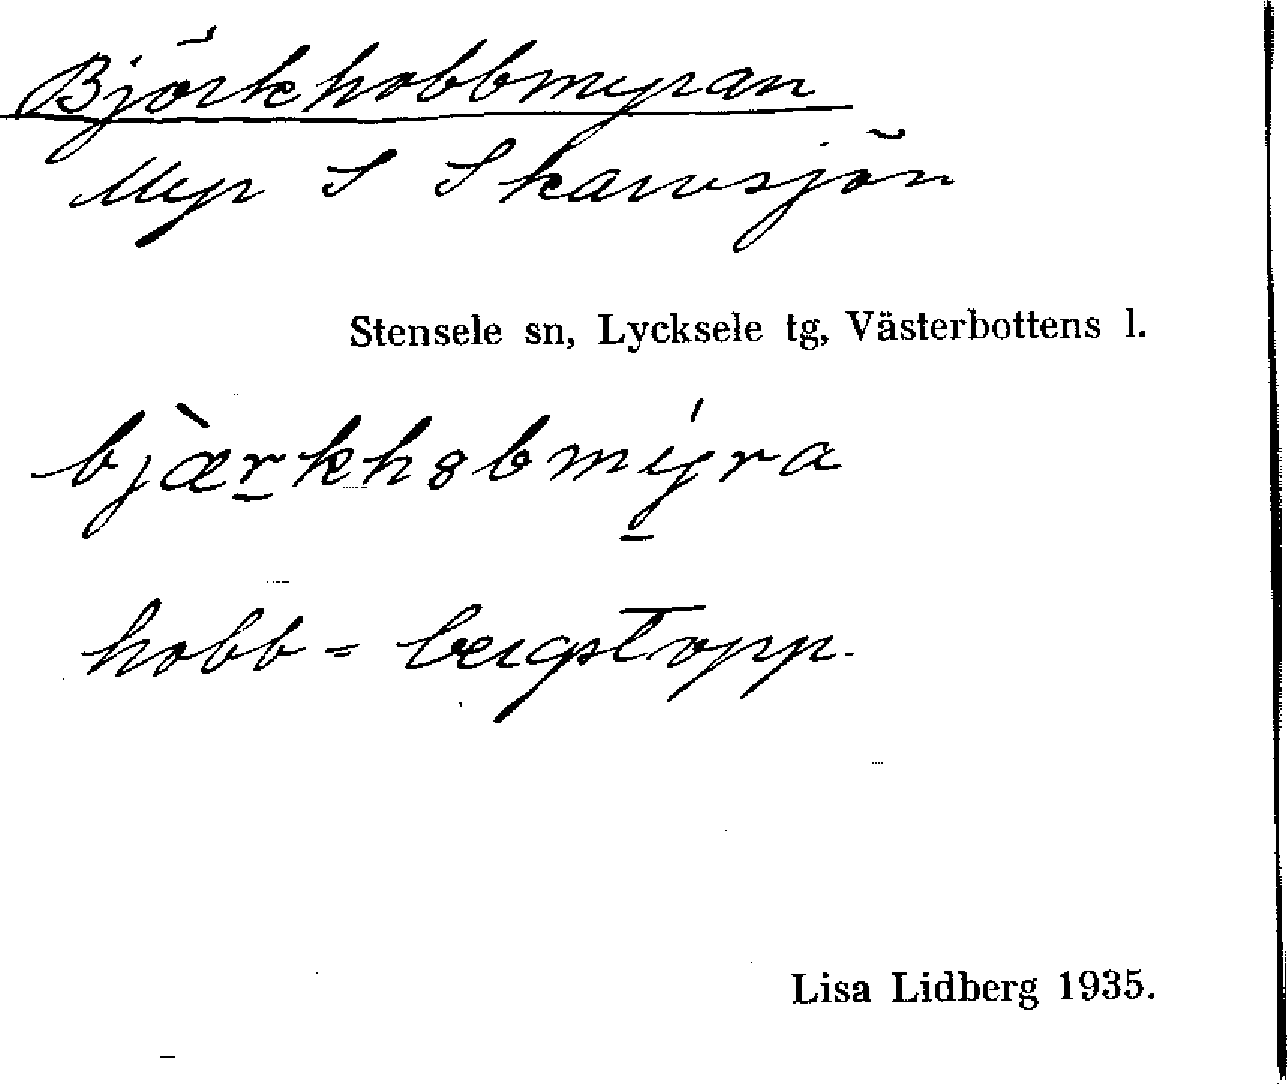 Björkhobbmyran
Myr S Skarvsjön
Stensele sn, Lycksele tg, Västerbottens l.
bjæ̀r̲kh8bmýra
hobb = bergstopp.
Lisa Lidberg 1935.